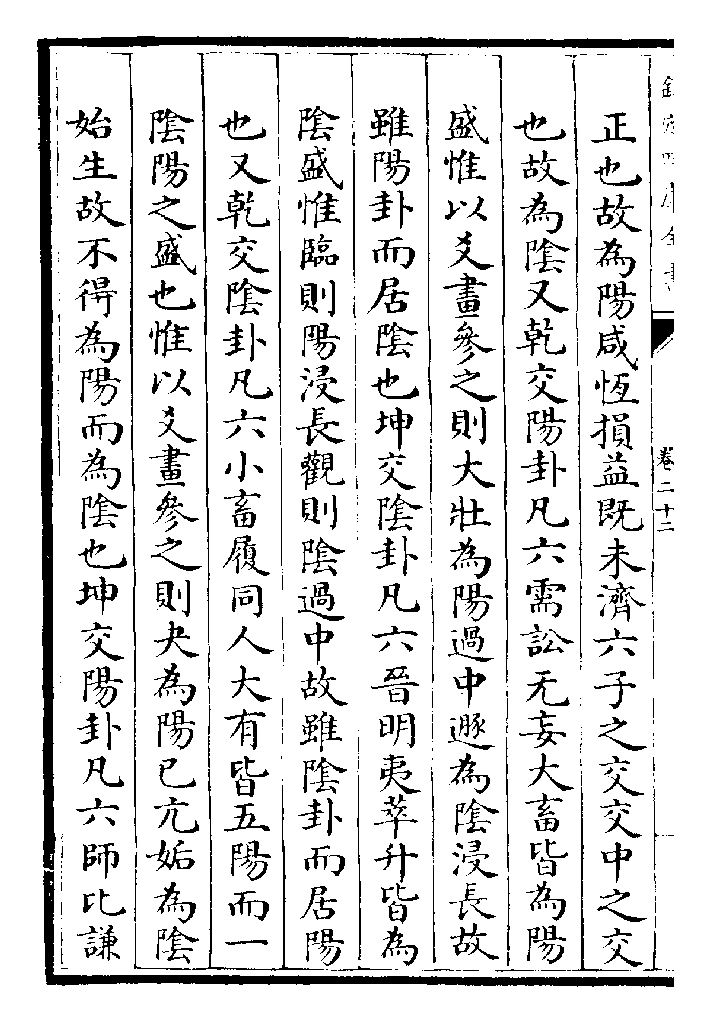 欽定四庫全書
卷二十二
正也故為陽咸恆損益既未濟六子之交交中之交
也故為陰又乾交陽卦凡六需訟无妄大畜皆為陽
盛惟以爻畫參之則大壯為陽過中遯為陰浸長故
雖陽卦而居陰也坤交陰卦凡六晉明夷萃升皆為
陰盛惟臨則陽浸長觀則陰過中故雖陰卦而居陽
也又乾交陰卦凡六小畜履同人大有皆五陽而一
陰陽之盛也惟以爻畫參之則夬為陽已亢姤為陰
始生故不得為陽而為陰也坤交陽卦凡六師比謙